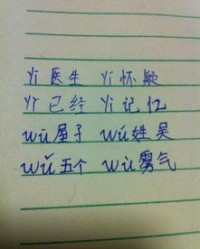 yī医生 yí怀疑
yǐ已经 yì记忆
wū屋子 wú姓吴
wǔ五个 wù雾气